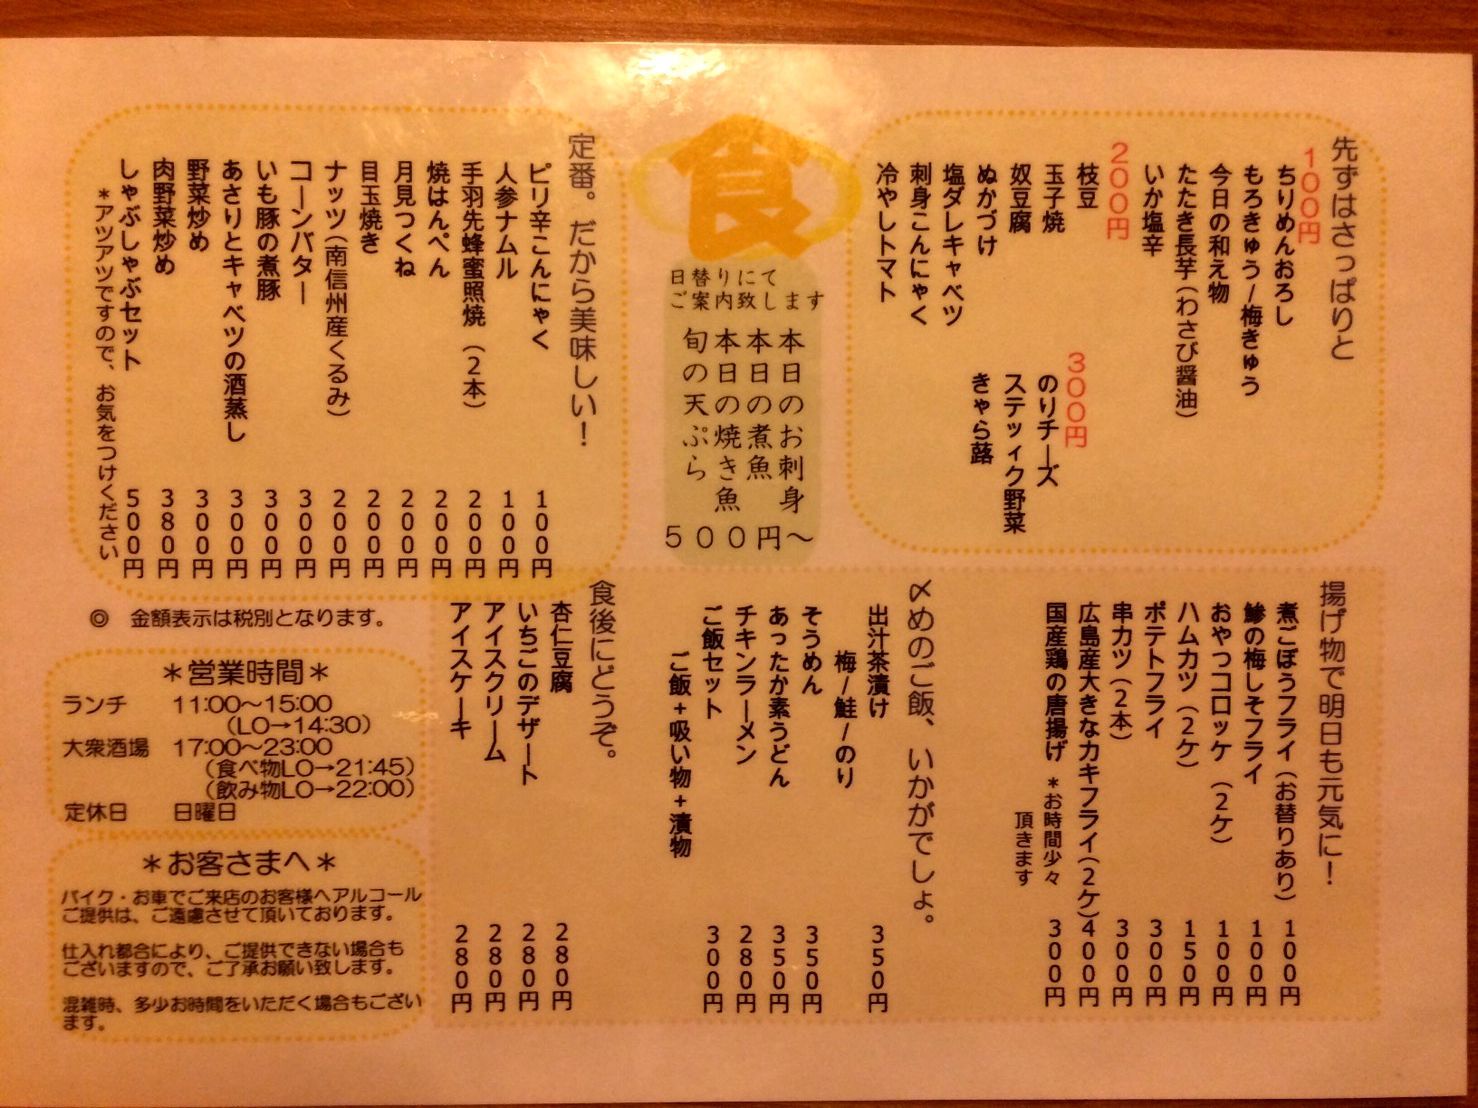 先ずはさっぱりと
100円
ちりめんおろし
もろきゅう/梅きゅう
今日の和え物
たたき長芋(わさび醤油)
いか塩辛
200円
枝豆
玉子焼
奴豆腐
ぬかづけ
塩ダレキャベツ
刺身こんにゃく
冷やしトマト
300円
のりチーズ
スティック野菜
きゃら蕗
食
日替りにて
ご案内致します
本日のお刺身
本日の煮魚
本日の焼き魚
旬の天ぷら
500円〜
定番。だから美味しい！
ピリ辛こんにゃく 100円
人参ナムル 100円
手羽先蜂蜜照焼(2本) 200円
焼はんぺん 200円
月見つくね 200円
目玉焼き 200円
ナッツ(南信州産くるみ) 200円
コーンバター 300円
いも豚の煮豚 300円
あさりとキャベツの酒蒸し 300円
野菜炒め 300円
肉野菜炒め 380円
しゃぶしゃぶセット 500円
*アツアツですので、お気をつけください
揚げ物で明日も元気に！
煮ごぼうフライ(お替りあり) 100円
鯵の梅しそフライ 100円
おやつコロッケ(2ケ) 100円
ハムカツ(2ケ) 150円
ポテトフライ 300円
串カツ(2本) 300円
広島産大きなカキフライ(2ケ) 400円
国産鶏の唐揚げ *お時間少々 300円
頂きます
〆めのご飯、いかがでしょ。
出汁茶漬け 350円
梅/鮭/のり
そうめん 350円
あったか素うどん 350円
チキンラーメン 280円
ご飯セット 300円
ご飯+吸い物+漬物
食後にどうぞ。
杏仁豆腐 280円
いちごのデザート 280円
アイスクリーム 280円
アイスケーキ 280円
◎ 金額表示は税別となります。
*営業時間*
ランチ 11:00〜15:00
(LO→14:30)
大衆酒場 17:00〜23:00
(食べ物LO→21:45)
(飲み物LO→22:00)
定休日 日曜日
*お客さまへ*
バイク・お車でご来店のお客様へアルコール
ご提供は、ご遠慮させて頂いております。
仕入れ都合により、ご提供できない場合も
ございますので、ご了承お願い致します。
混雑時、多少お時間をいただく場合もござい
ます。